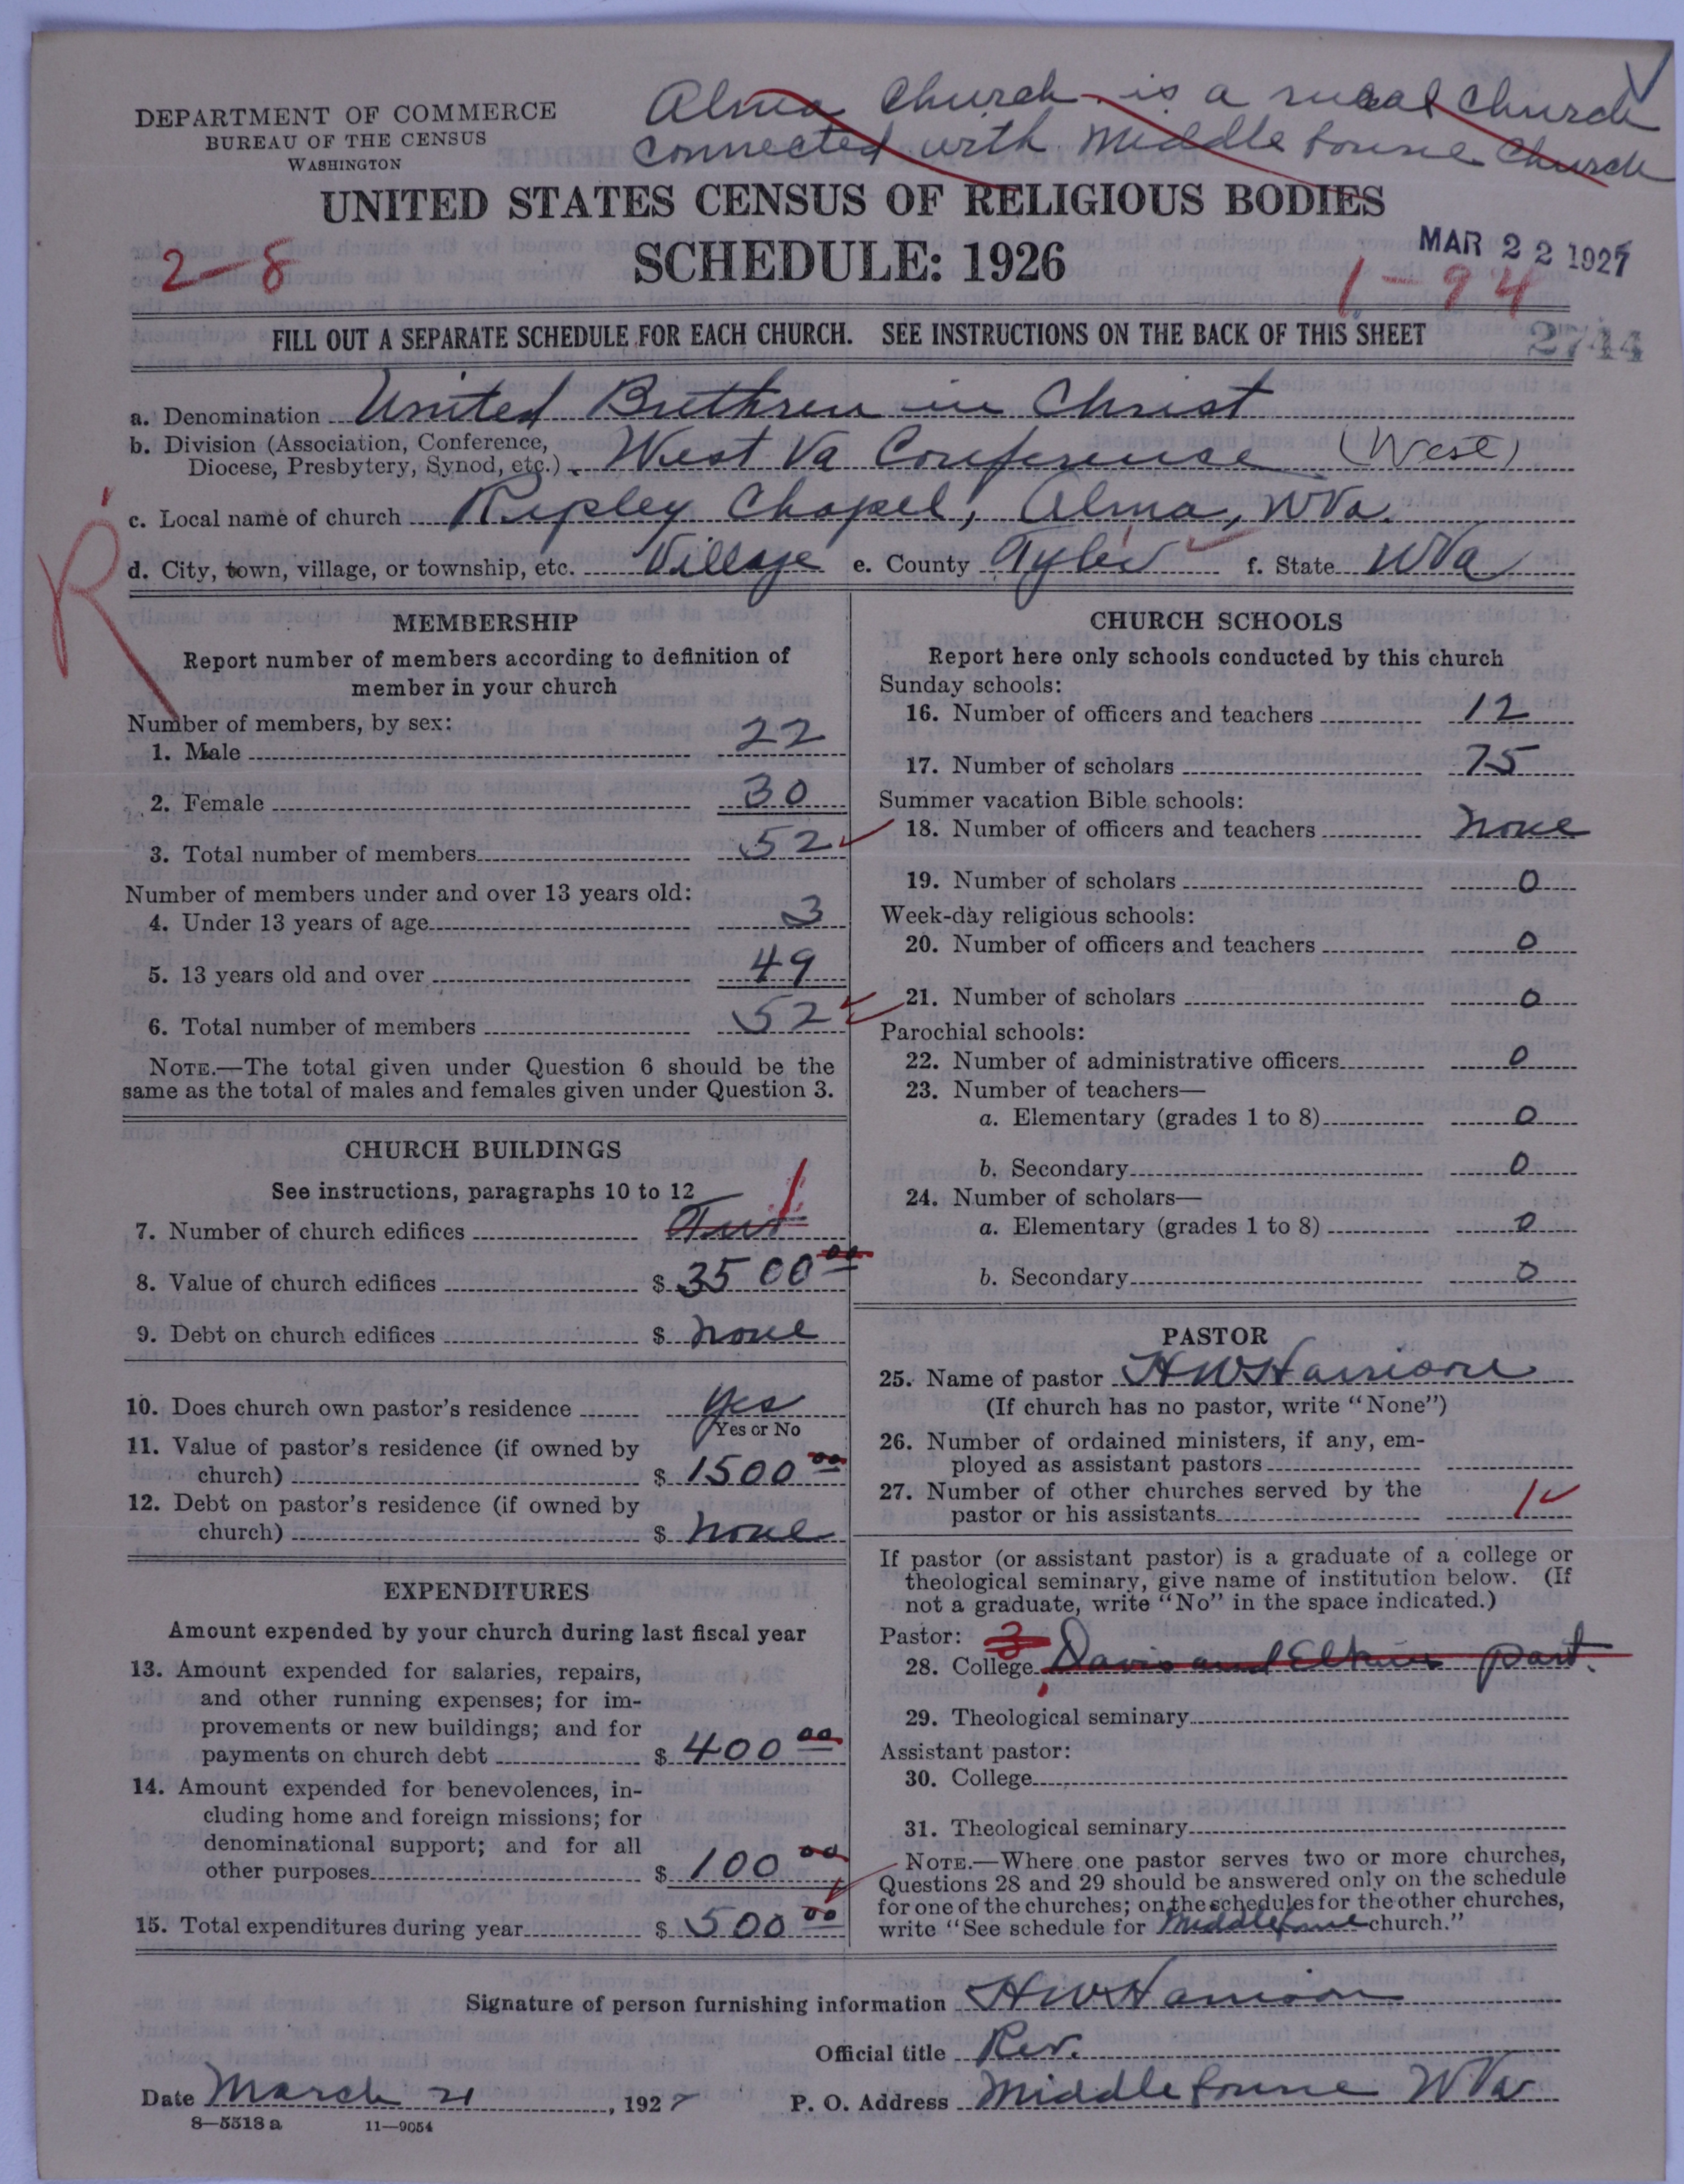 Alma Church is a rural church
connected with Middlebourne Church
DEPARTMENT OF COMMERCE
BUREAU OF THE CENSUS
WASHINGTON
UNITED STATES CENSUS OF RELIGIOUS BODIES
SCHEDULE: 1926
2-8
MAR 22 1927
1-94
FILL OUT A SEPARATE SCHEDULE FOR EACH CHURCH. SEE INSTRUCTIONS ON THE BACK OF THIS SHEET
2744
a. Denomination United Brethren in Christ
b. Division (Association, Conference,
Diocese, Presbytery, Synod, etc.) West Va Conference (West)
c. Local name of church Ripley Chapel, Alma, WVa.
d. City, town, village, or township, etc. Village e. County Tyler f. State WVa
R
MEMBERSHIP
Report number of members according to definition of
member in your church
Number of members, by sex:
1. Male 22
2. Female 30
3. Total number of members 52
Number of members under and over 13 years old:
4. Under 13 years of age 3
5. 13 years old and over 49
6. Total number of members 52
NOTE.—The total given under Question 6 should be the
same as the total of males and females given under Question 3.
CHURCH BUILDINGS
See instructions, paragraphs 10 to 12
7. Number of church edifices 1
8. Value of church edifices $ 3500 00
9. Debt on church edifices $ none
10. Does church own pastor's residence yes
Yes or No
11. Value of pastor's residence (if owned by
church) $ 1500 00
12. Debt on pastor's residence (if owned by
church) $ none
EXPENDITURES
Amount expended by your church during last fiscal year
13. Amount expended for salaries, repairs,
and other running expenses; for im-
provements or new buildings; and for
payments on church debt $ 400 00
14. Amount expended for benevolences, in-
cluding home and foreign missions; for
denominational support; and for all
other purposes $ 100 00
15. Total expenditures during year $ 500 00
CHURCH SCHOOLS
Report here only schools conducted by this church
Sunday schools:
16. Number of officers and teachers 12
17. Number of scholars 75
Summer vacation Bible schools:
18. Number of officers and teachers none
19. Number of scholars 0
Week-day religious schools:
20. Number of officers and teachers 0
21. Number of scholars 0
Parochial schools:
22. Number of administrative officers 0
23. Number of teachers—
a. Elementary (grades 1 to 8) 0
b. Secondary 0
24. Number of scholars—
a. Elementary (grades 1 to 8) 0
b. Secondary 0
PASTOR
25. Name of pastor HW Harrison
(If church has no pastor, write "None")
26. Number of ordained ministers, if any, em-
ployed as assistant pastors
27. Number of other churches served by the
pastor or his assistants 1
If pastor (or assistant pastor) is a graduate of a college or
theological seminary, give name of institution below. (If
not a graduate, write "No" in the space indicated.)
Pastor: 3
28. College Davis and Elkins part.
29. Theological seminary
Assistant pastor:
30. College
31. Theological seminary
NOTE.—Where one pastor serves two or more churches,
Questions 28 and 29 should be answered only on the schedule
for one of the churches; on the schedules for the other churches,
write "See schedule for Middlebourne church."
Signature of person furnishing information HW Harrison
Official title Rev.
Date March 21, 1927 P. O. Address Middlebourne WVa
8—5518 a 11—9054